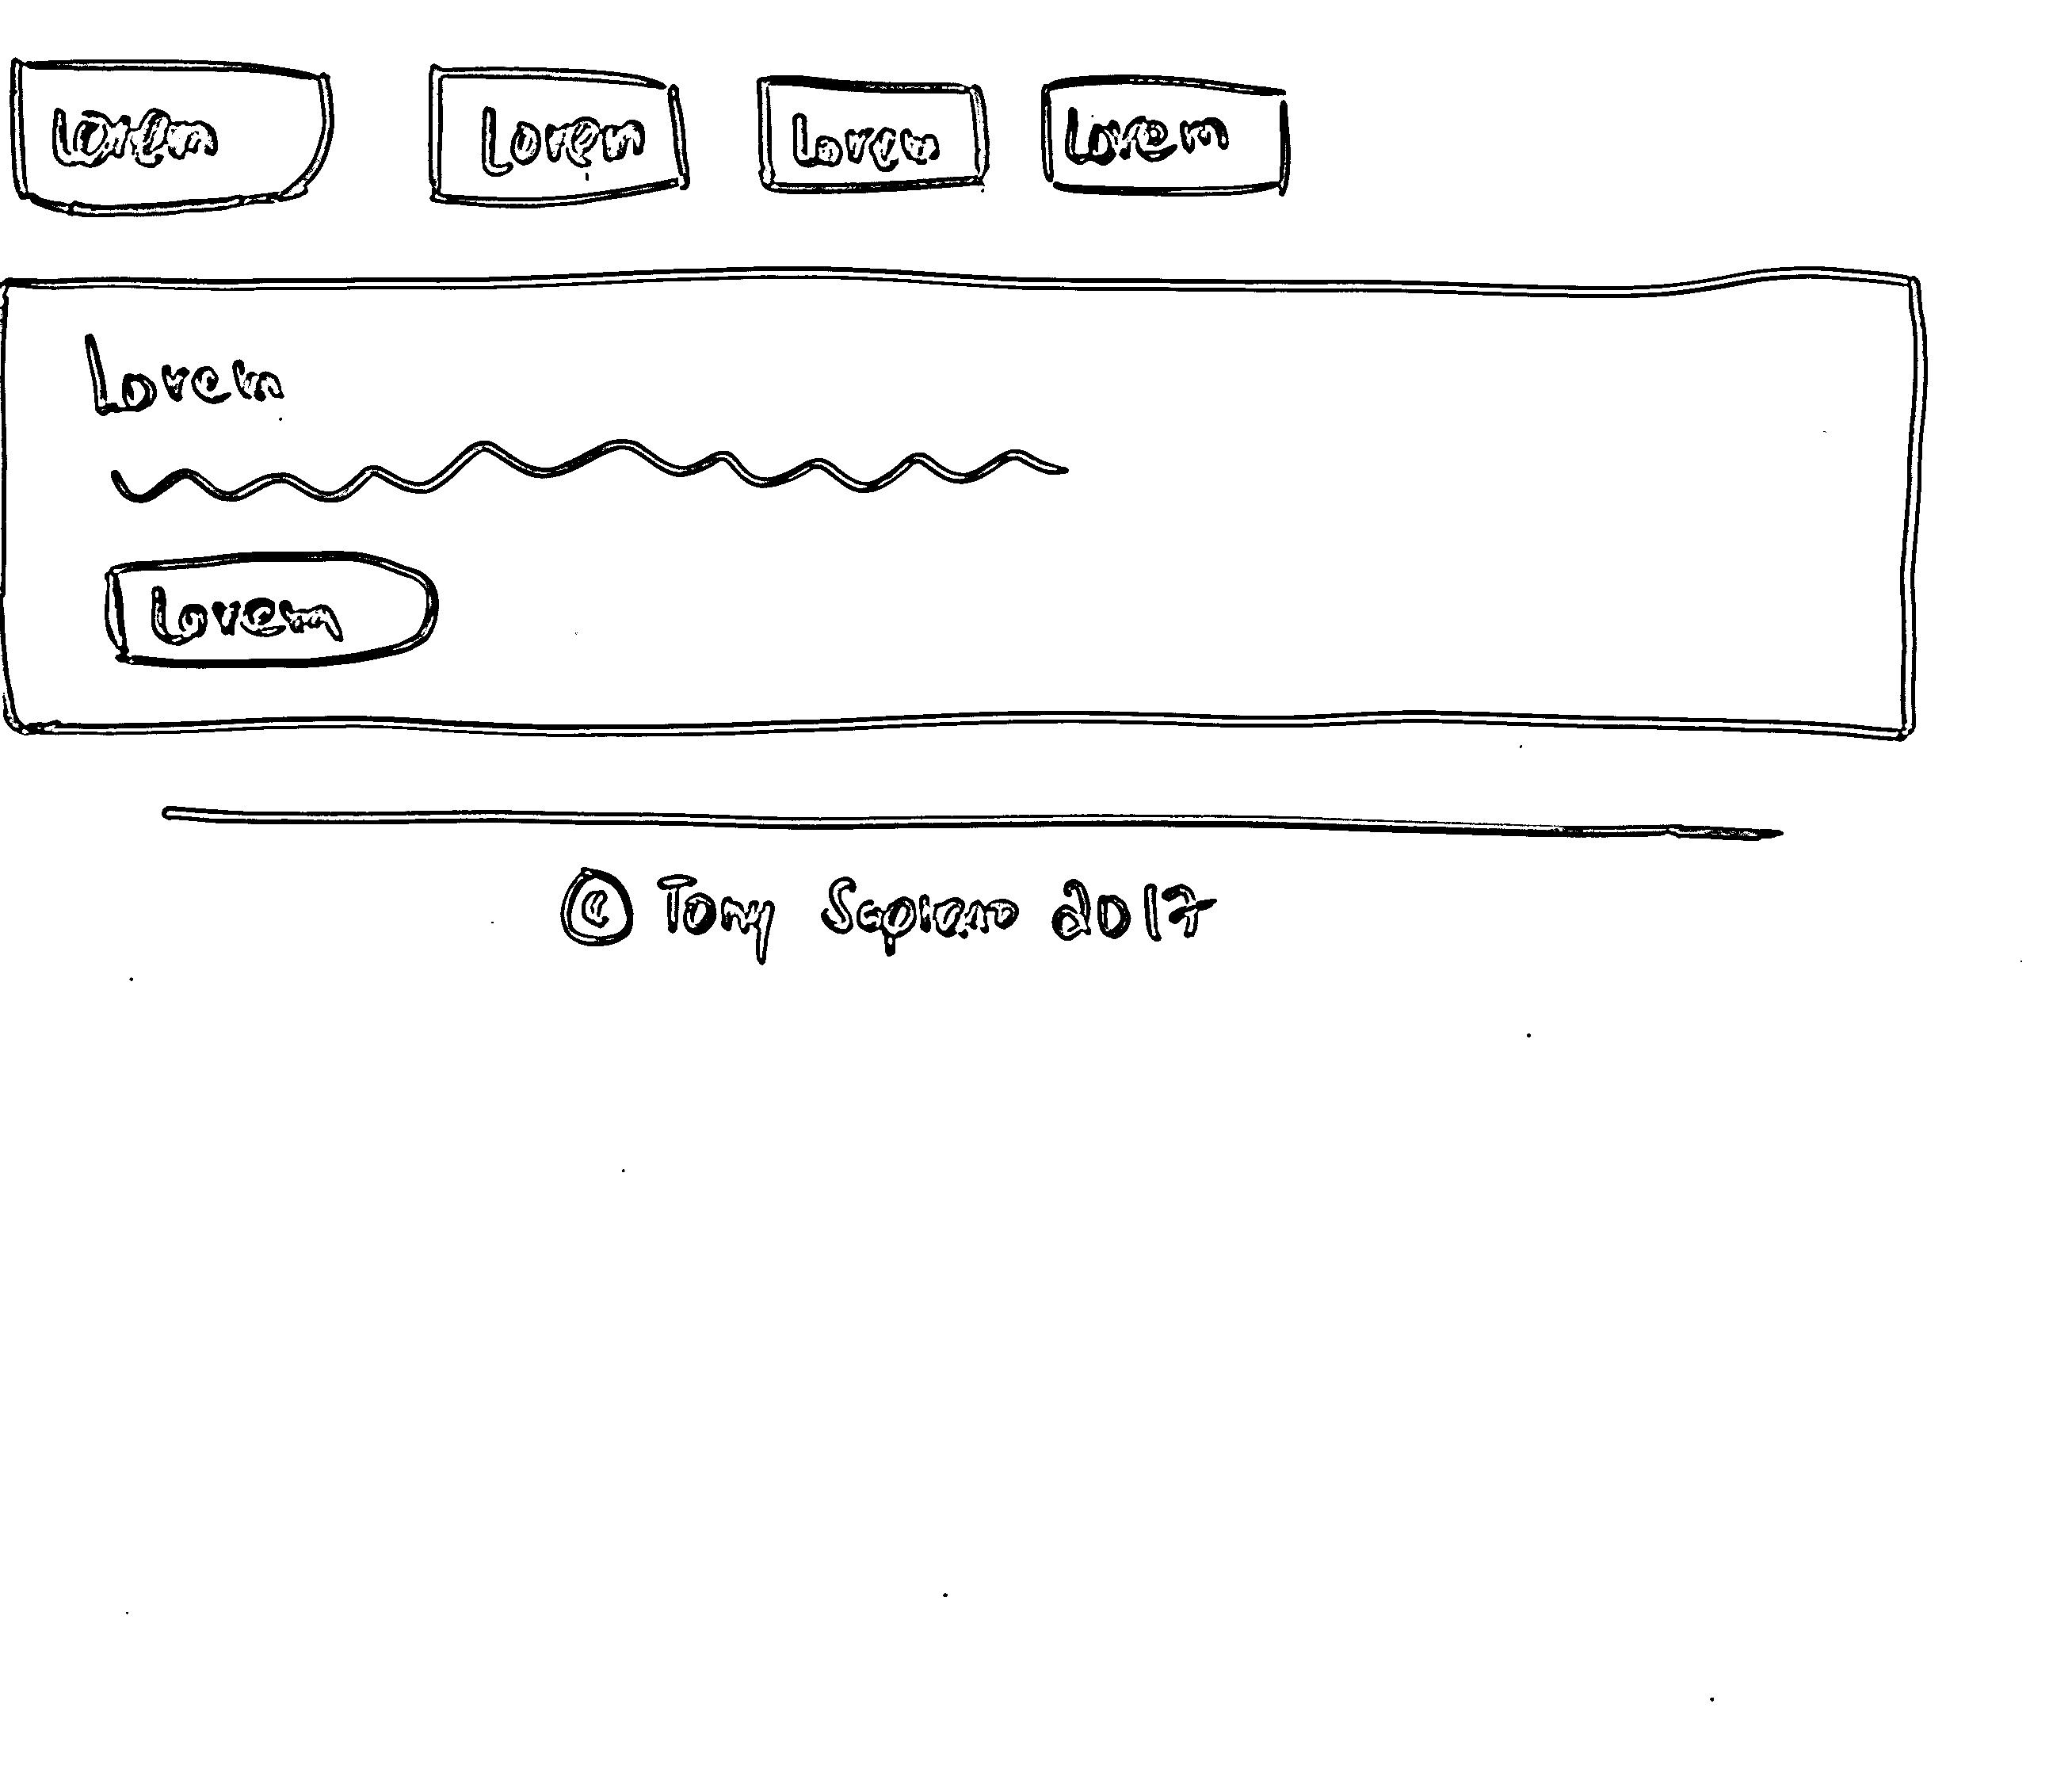 Lorem Lorem Lorem Lorem
Lorem
Lorem
© Tony Sapiano 2017